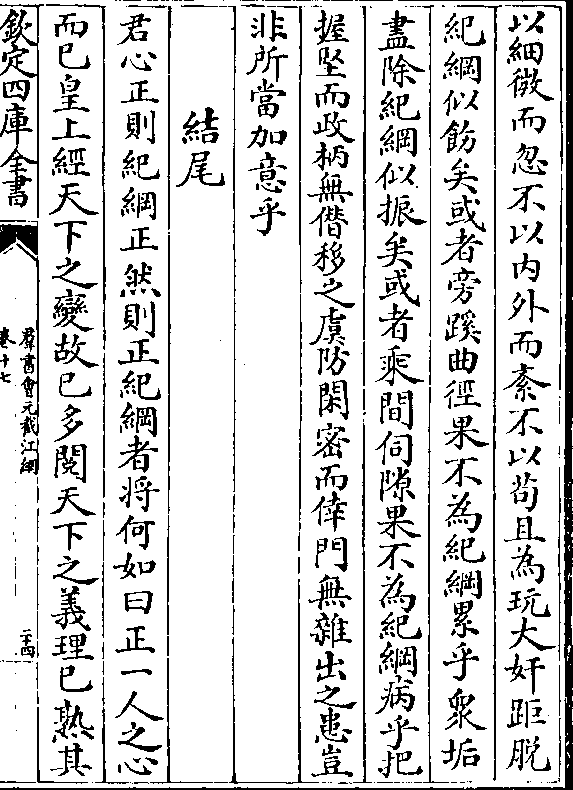 以細微而忽不以内外而紊不以苟且為玩大奸距脱
紀綱似飭矣或者旁蹊曲徑果不為紀綱累乎衆垢
盡除紀綱似振矣或者乘間伺隙果不為紀綱病乎把
握堅而政柄無僭移之虞防閑密而倖門無雜出之患豈
非所當加意乎
結尾
君心正則紀綱正然則正紀綱者将何如曰正一人之心
而已皇上經天下之變故已多閱天下之義理已熟其
欽定四庫全書
羣書會元截江網
卷十七
二十四